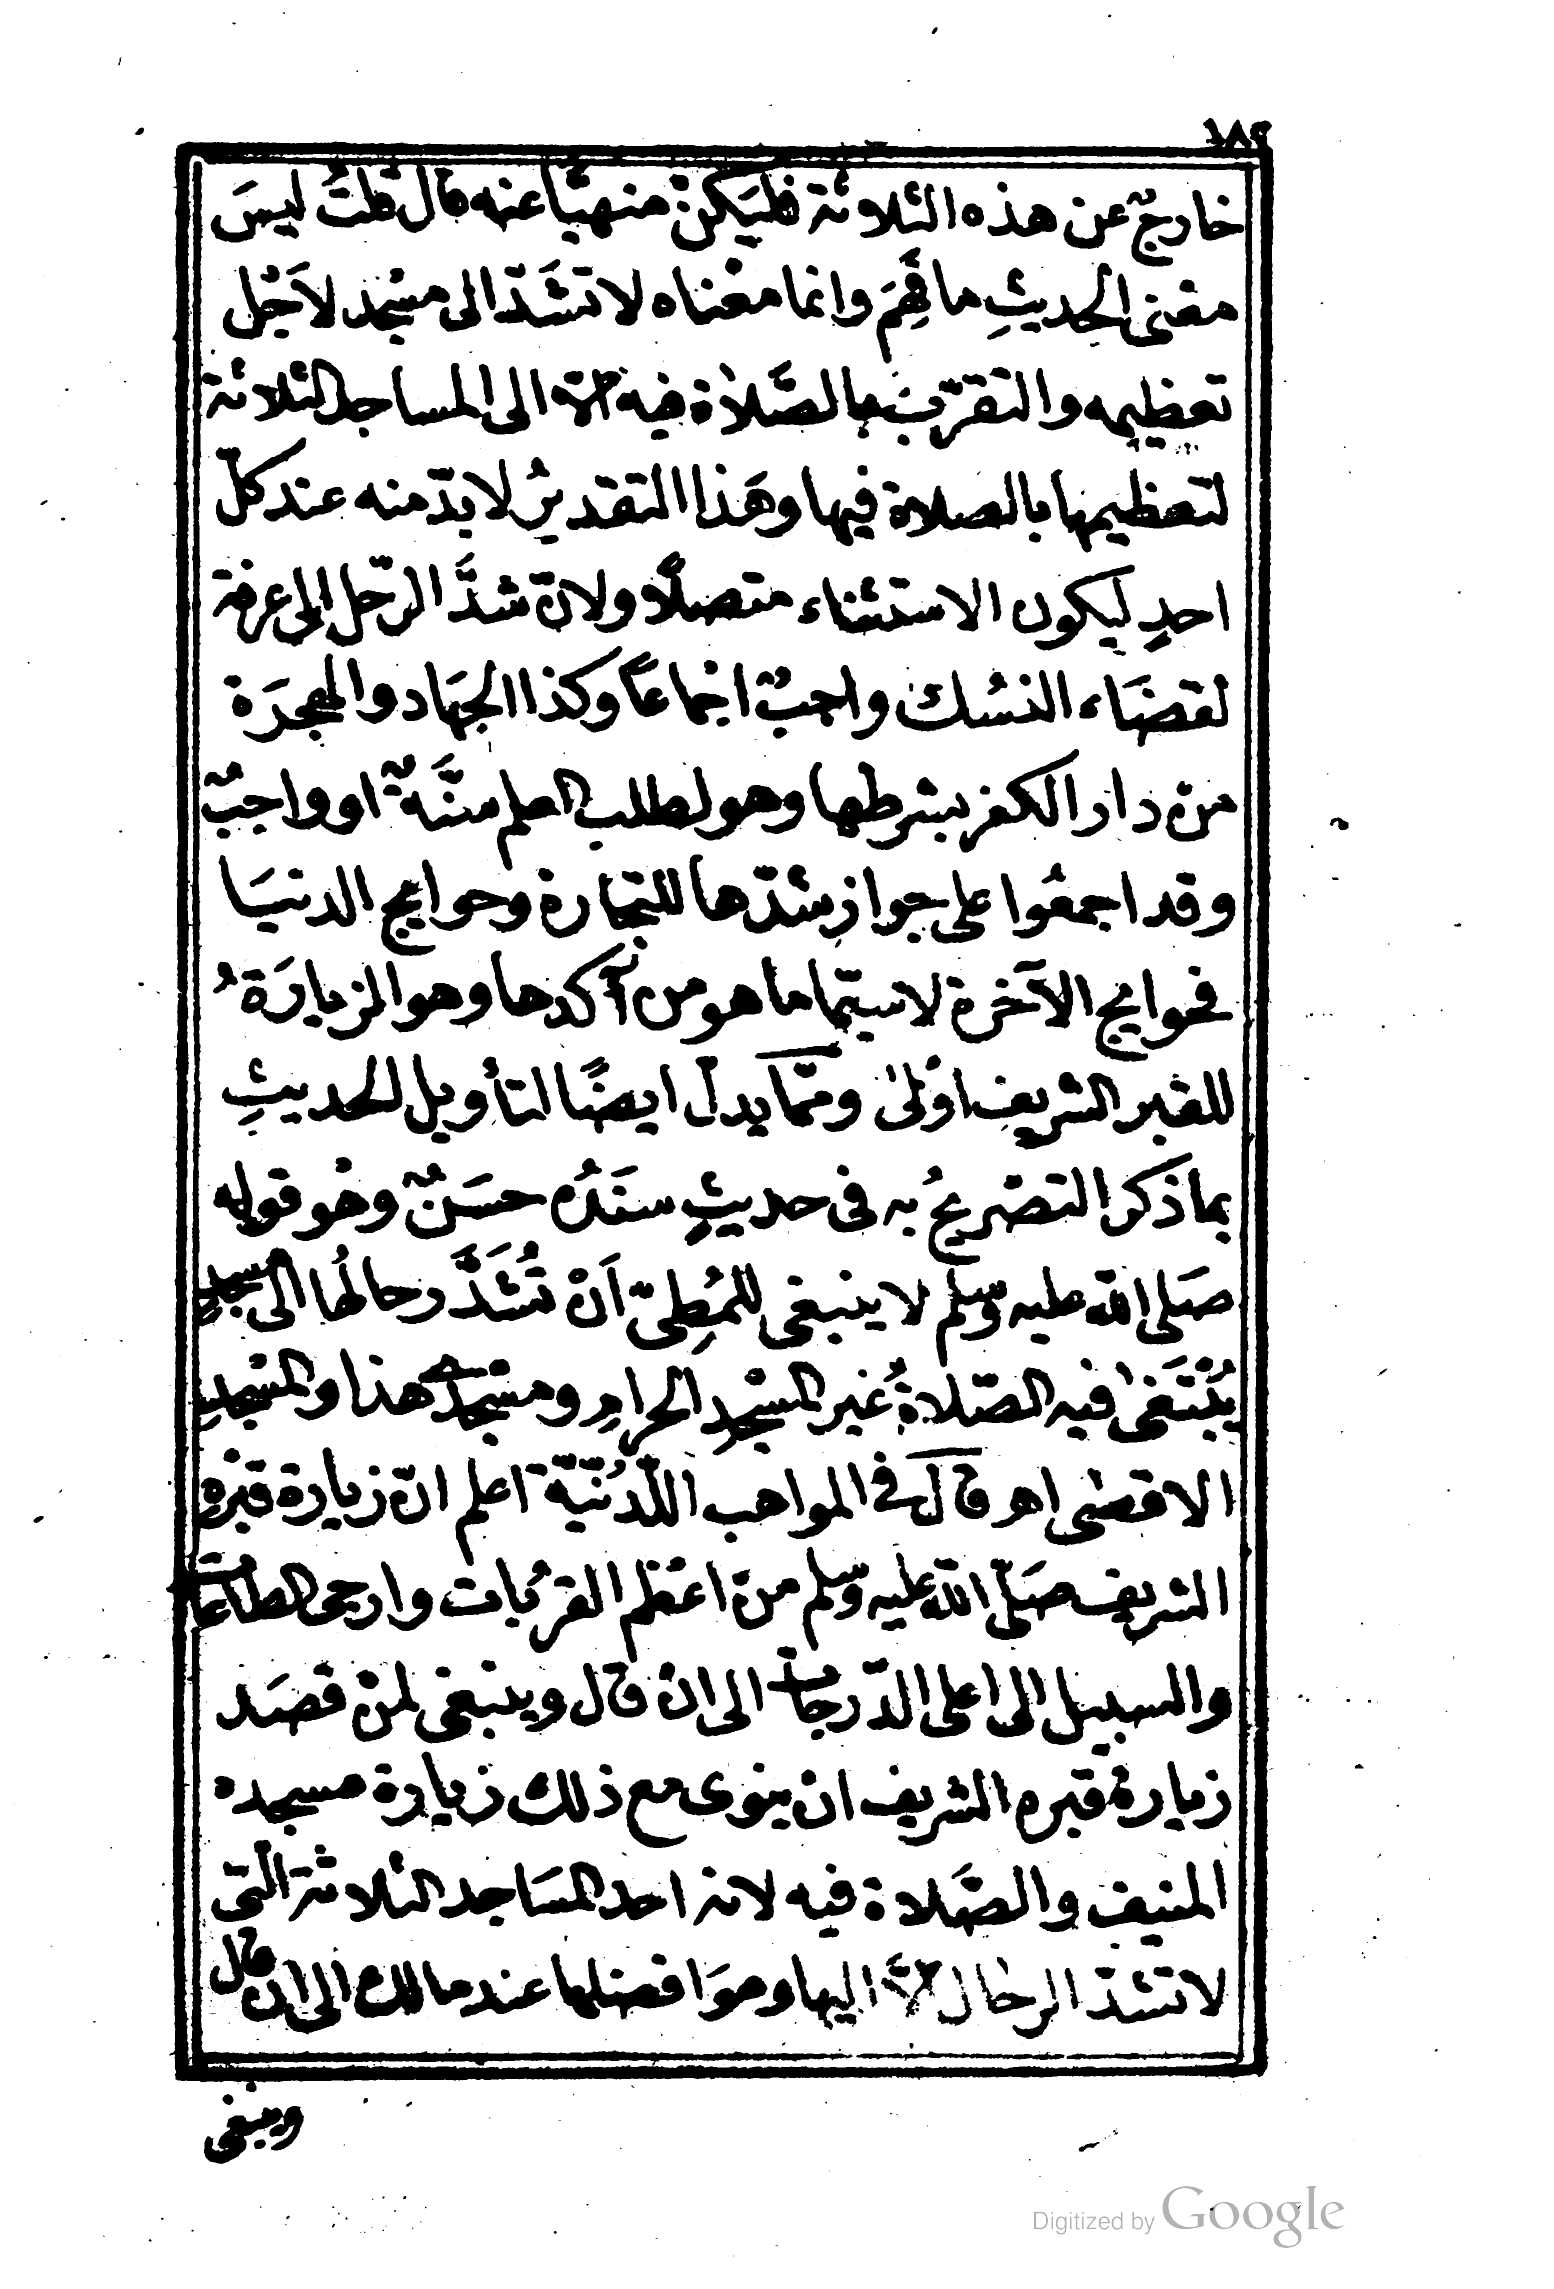 ١٨٩
خارجٌ عن هذه الثلاثة فليَكنْ منهيًّا عنه قال قلتُ ليسَ
معْنى الحديثِ ما فَهِمَ وانما معْناه لا تشَدّ الى مسْجد لاَجْل
تعظيمه والتقرّب بالصَّلاة فيه الاّ الى المساجد الثلاثة
لتعظيمها بالصلاة فيها وهَذا التقديرُ لا بدّ منه عند كلّ
احدٍ ليكون الاستثناء متصلًا ولانّ شدَّ الرّحل الى عرفة
لقضَاء النسُك واجبٌ اجْماعاً وكذا الجهَاد والهجرَة
منْ دار الكفر بشرطها وهو لطلب العلم سنَّةٌ او واجبٌ
وقد اجمعُوا على جواز شدّها للتجارة وحوايج الدنيَا
فحوايج الآخرة لا سيّما ما هو من آكدها وهو الزيارَةُ
للقبر الشريف اوْلىٰ وممّا يدلّ ايضًا لتأويل الحديثِ
بما ذكر التصْريحُ به فى حديثٍ سنَدُه حسَنٌ وهُو قوله
صَلى الله عليه وسلم لا ينبغى للمُطِىّ اَنْ تُشَدَّ رحالُها الى مسجدٍ
يُبْتَغىٰ فيه الصّلاةُ غير المسْجدِ الحرامِ ومسْجدى هذا والمسْجدِ
الاقصٰى اهـ قال فى المواهب اللّدُنّيّة اعلم انّ زيارة قبْره
الشريف صَلّى الله عليه وسلم منْ اعْظم القرُبات وارجى الطاعات
والسبيل الى اعلى الدّرجات الى انْ قال وينبغى لمنْ قصَد
زيارة قبره الشريف ان ينوى مع ذلك زيارة مسجده
المنيف والصَّلاة فيه لانه احد المسَاجد الثلاثة التى
لا تشدّ الرحال الاّ اليها وهوَ افضلها عند مالك الى ان قال
وينبغى
Digitized by Google